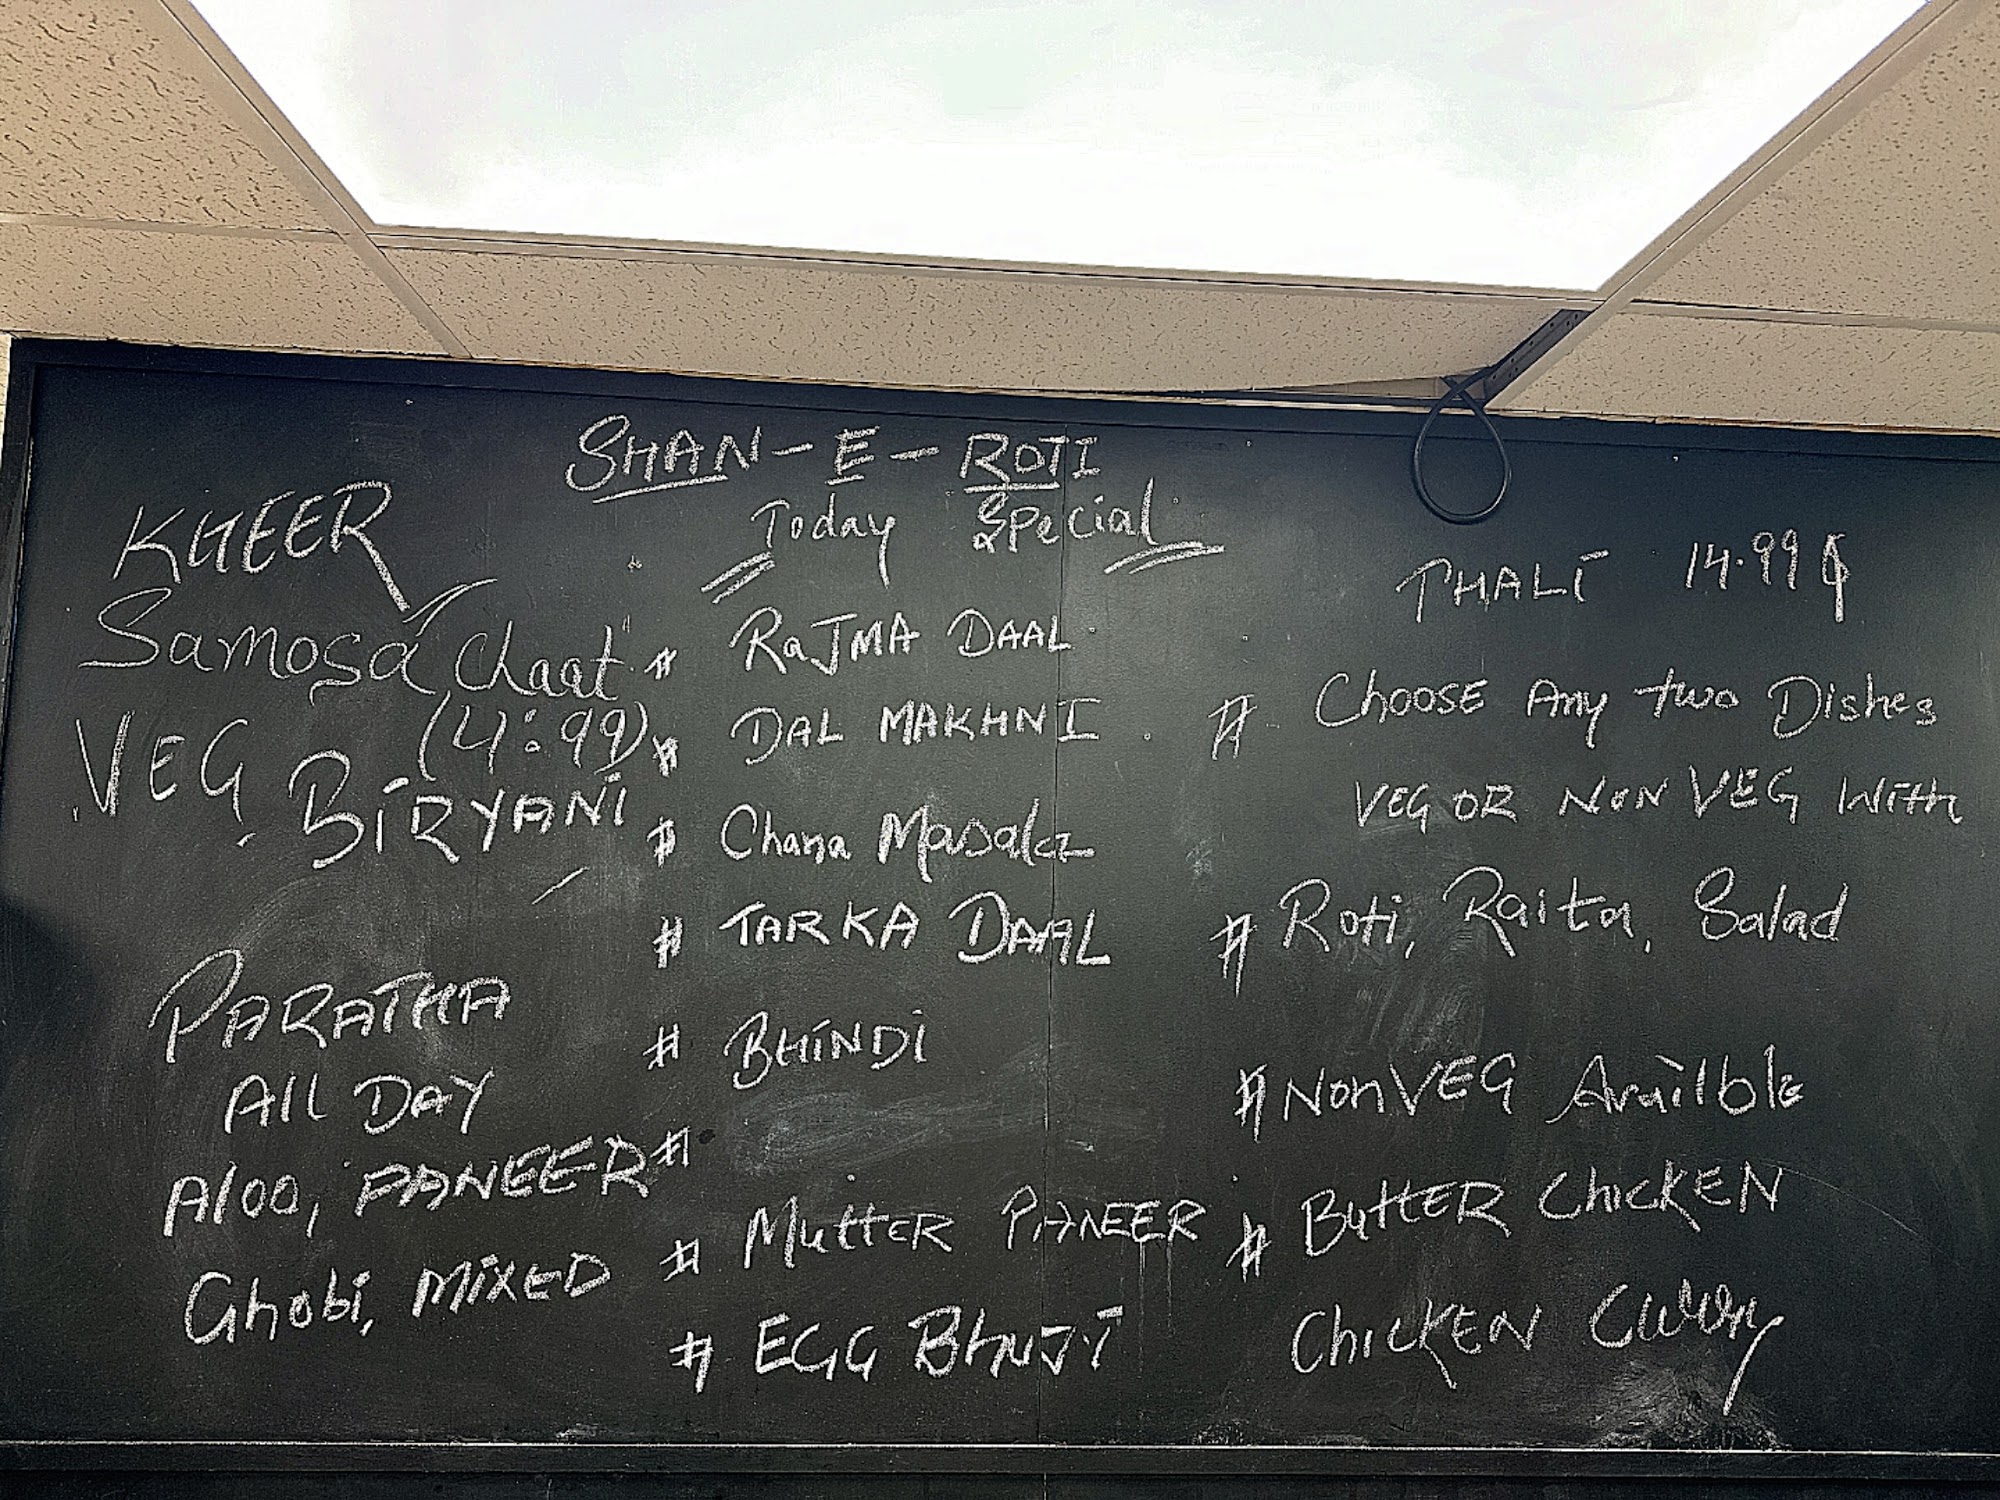 SHAN-E-ROTI
Today Special
KHEER
Samosa Chaat
(4:99)
VEG BIRYANI
PARATHA
All DAY
Aloo, PANEER
Ghobi, MIXED
# RAJMA DAAL
# DAL MAKHNI
# Chana Masala
# TARKA DAAL
# BHINDI
#
# MUttER PANEER
# EGG BHUJI
THALI 14.99$
# CHOOSE Any two Dishes
VEG OR NON VEG With
# Roti, Raita, Salad
# NonVEG Availble
# BUttER CHICKEN
CHICKEN Curry